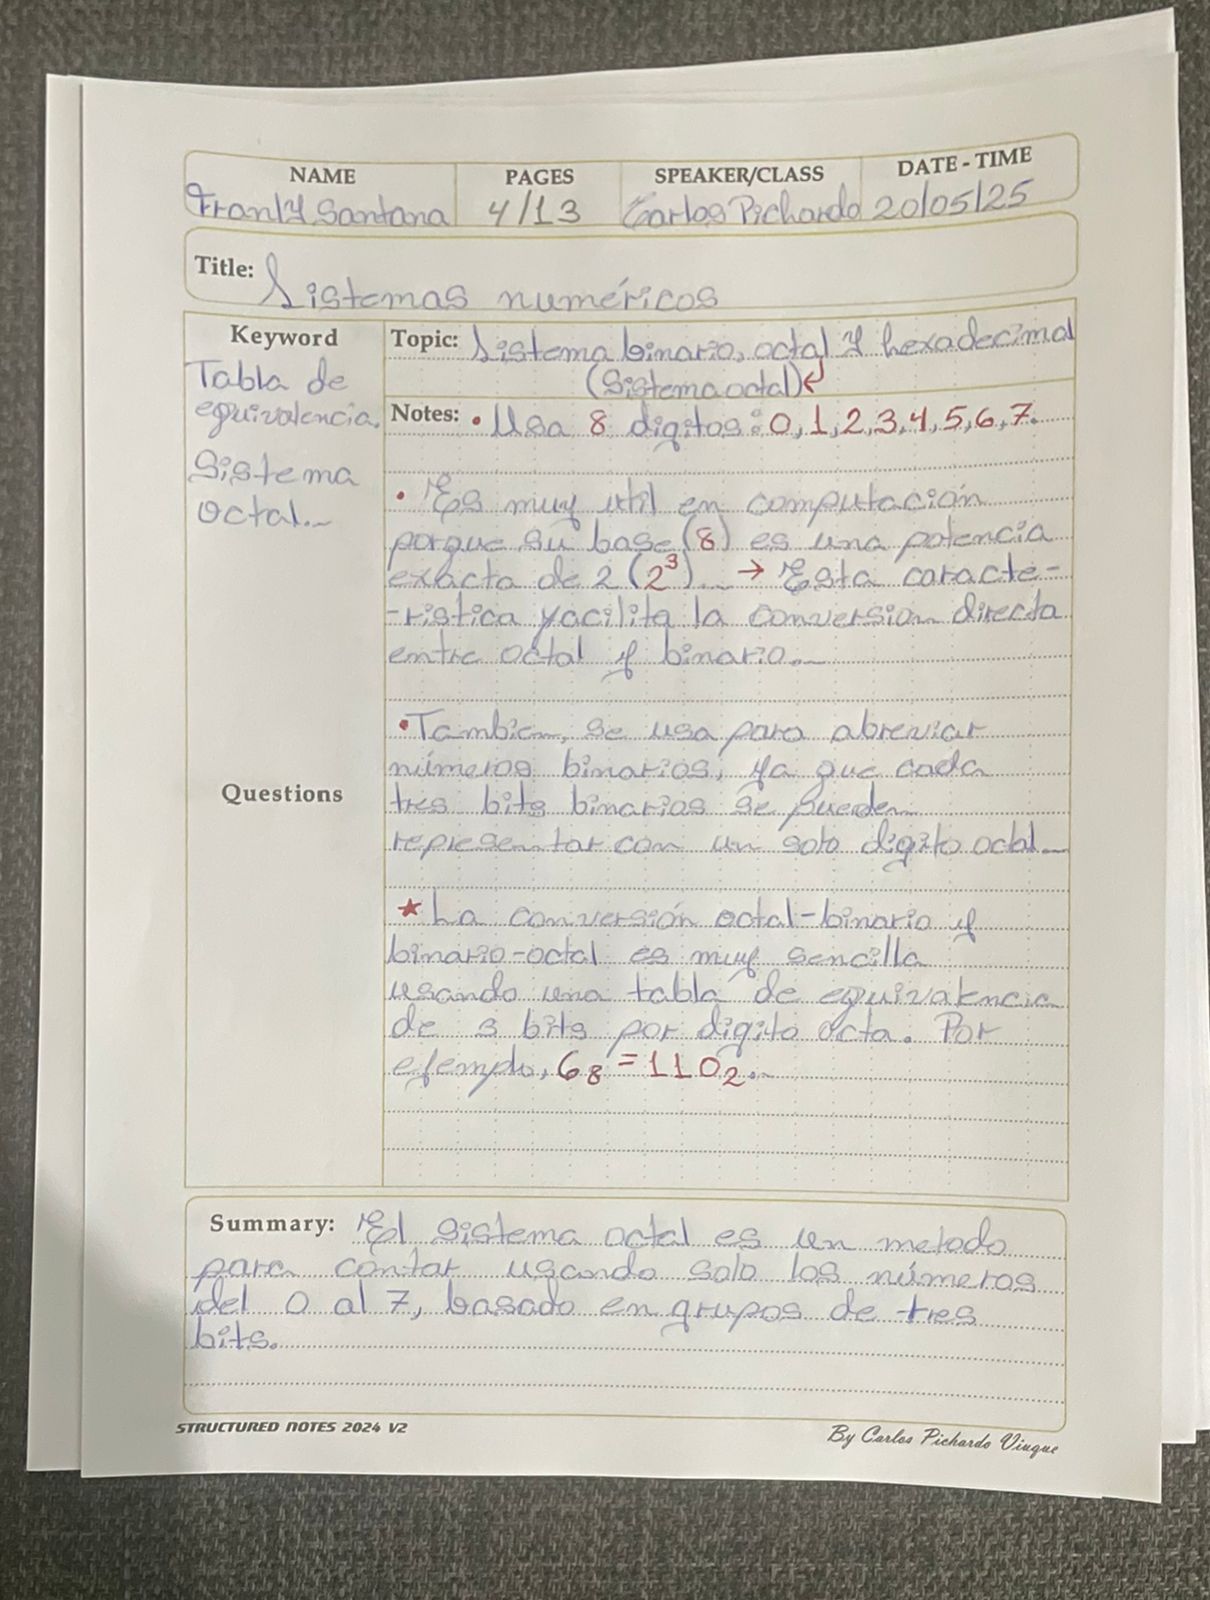 NAME PAGES SPEAKER/CLASS DATE - TIME
Franly Santana 4/13 Carlos Pichardo 20/05/25
Title: Sistemas numéricos
Keyword
Tabla de
equivalencia.
Sistema
octal...
Questions
Topic: Sistema binario, octal y hexadecimal
(Sistema octal)
Notes: • Usa 8 digitos: 0, 1, 2, 3, 4, 5, 6, 7.
• Es muy util en computación
porque su base (8) es una potencia
exacta de 2 (2³)... → Esta caracte-
-ristica facilita la conversion directa
entre octal y binario...
• Tambien, se usa para abreviar
números binarios, ya que cada
tres bits binarios se pueden
representar con un solo digito octal...
★ La conversión octal-binario y
binario-octal es muy sencilla
usando una tabla de equivalencia
de 3 bits por digito octa. Por
ejemplo, 6₈ = 110₂...
Summary: El sistema octal es un metodo
para contar usando solo los números
del 0 al 7, basado en grupos de tres
bits.
STRUCTURED NOTES 2024 V2
By Carlos Pichardo Viuque